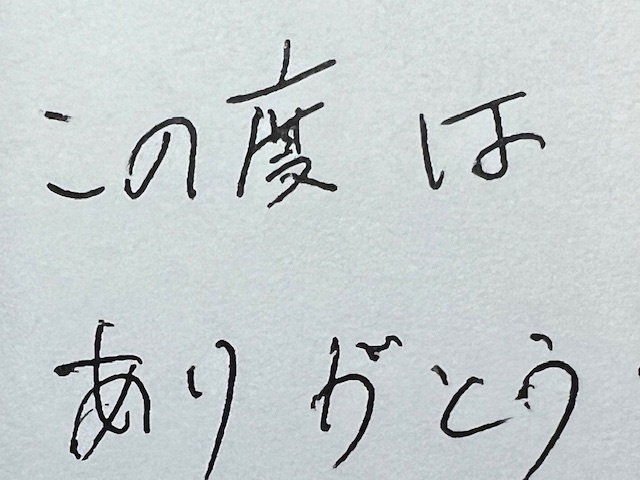 この度は
ありがとう